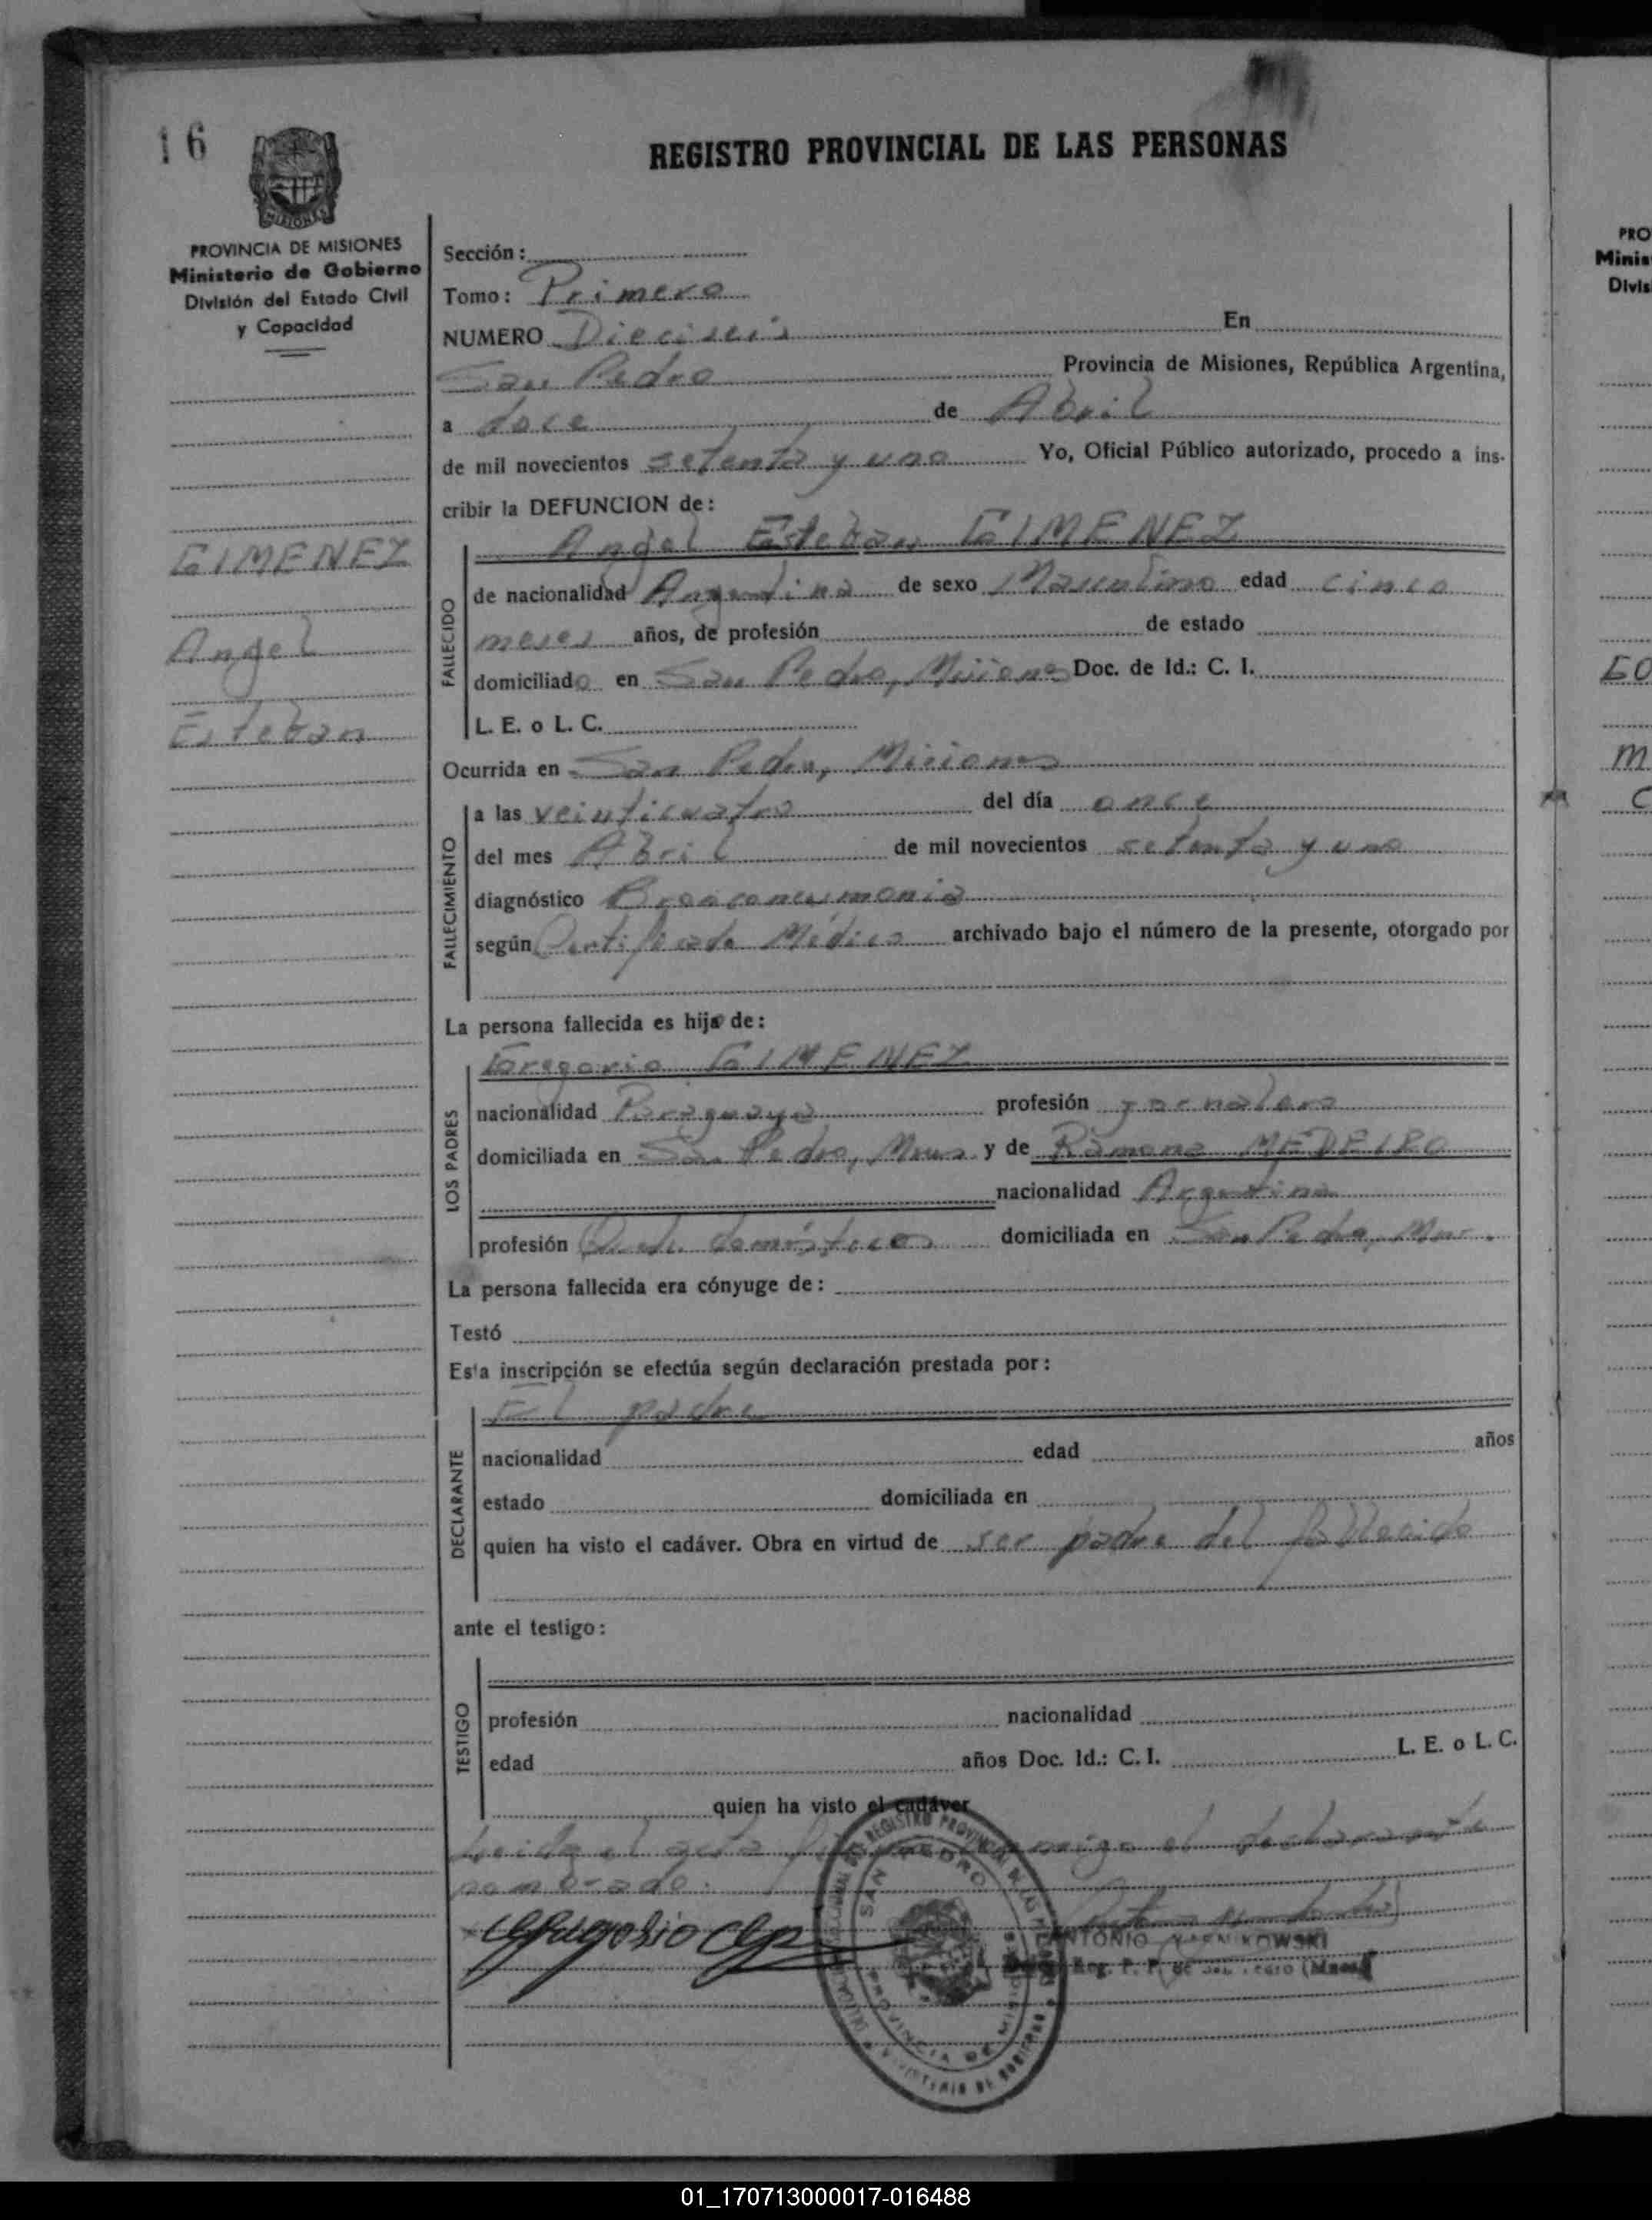 16
REGISTRO PROVINCIAL DE LAS PERSONAS
MISIONES
PROVINCIA DE MISIONES
Ministerio de Gobierno
División del Estado Civil
y Capacidad
GIMENEZ
Angel
Esteban
Sección:
Tomo: Primero
NUMERO Dieciseis En
San Pedro Provincia de Misiones, República Argentina,
a doce de Abril
de mil novecientos setenta y uno Yo, Oficial Público autorizado, procedo a ins-
cribir la DEFUNCION de:
Angel Esteban GIMENEZ
FALLECIDO
de nacionalidad Argentina de sexo Masculino edad cinco
meses años, de profesión de estado
domiciliado en San Pedro, Misiones Doc. de Id.: C. I.
L. E. o L. C.
Ocurrida en San Pedro, Misiones
FALLECIMIENTO
a las veinticuatro del día once
del mes Abril de mil novecientos setenta y uno
diagnóstico Bronconeumonia
según Certificado Médico archivado bajo el número de la presente, otorgado por
La persona fallecida es hijo de:
LOS PADRES
Gregorio GIMENEZ
nacionalidad Paraguaya profesión jornalero
domiciliada en San Pedro, Mnes y de Ramona MEDEIRO
nacionalidad Argentina
profesión Q. ds. domésticos domiciliada en San Pedro, Mnes.
La persona fallecida era cónyuge de:
Testó
Esta inscripción se efectúa según declaración prestada por:
DECLARANTE
El padre
nacionalidad edad años
estado domiciliada en
quien ha visto el cadáver. Obra en virtud de ser padre del fallecido
ante el testigo:
TESTIGO
profesión nacionalidad
edad años Doc. Id.: C. I. L. E. o L. C.
quien ha visto el cadáver
Leida el acta conmigo el declarante
nombrado.
REGISTRO PROVINCIAL DE LAS
SAN PEDRO
PROVINCIA DE MISIONES
MINISTERIO DE GOBIERNO
ANTONIO
Reg. P. P. de San Pedro (Mnes)
PRO
Minis
Divis
GO
M
C
01_170713000017-016488